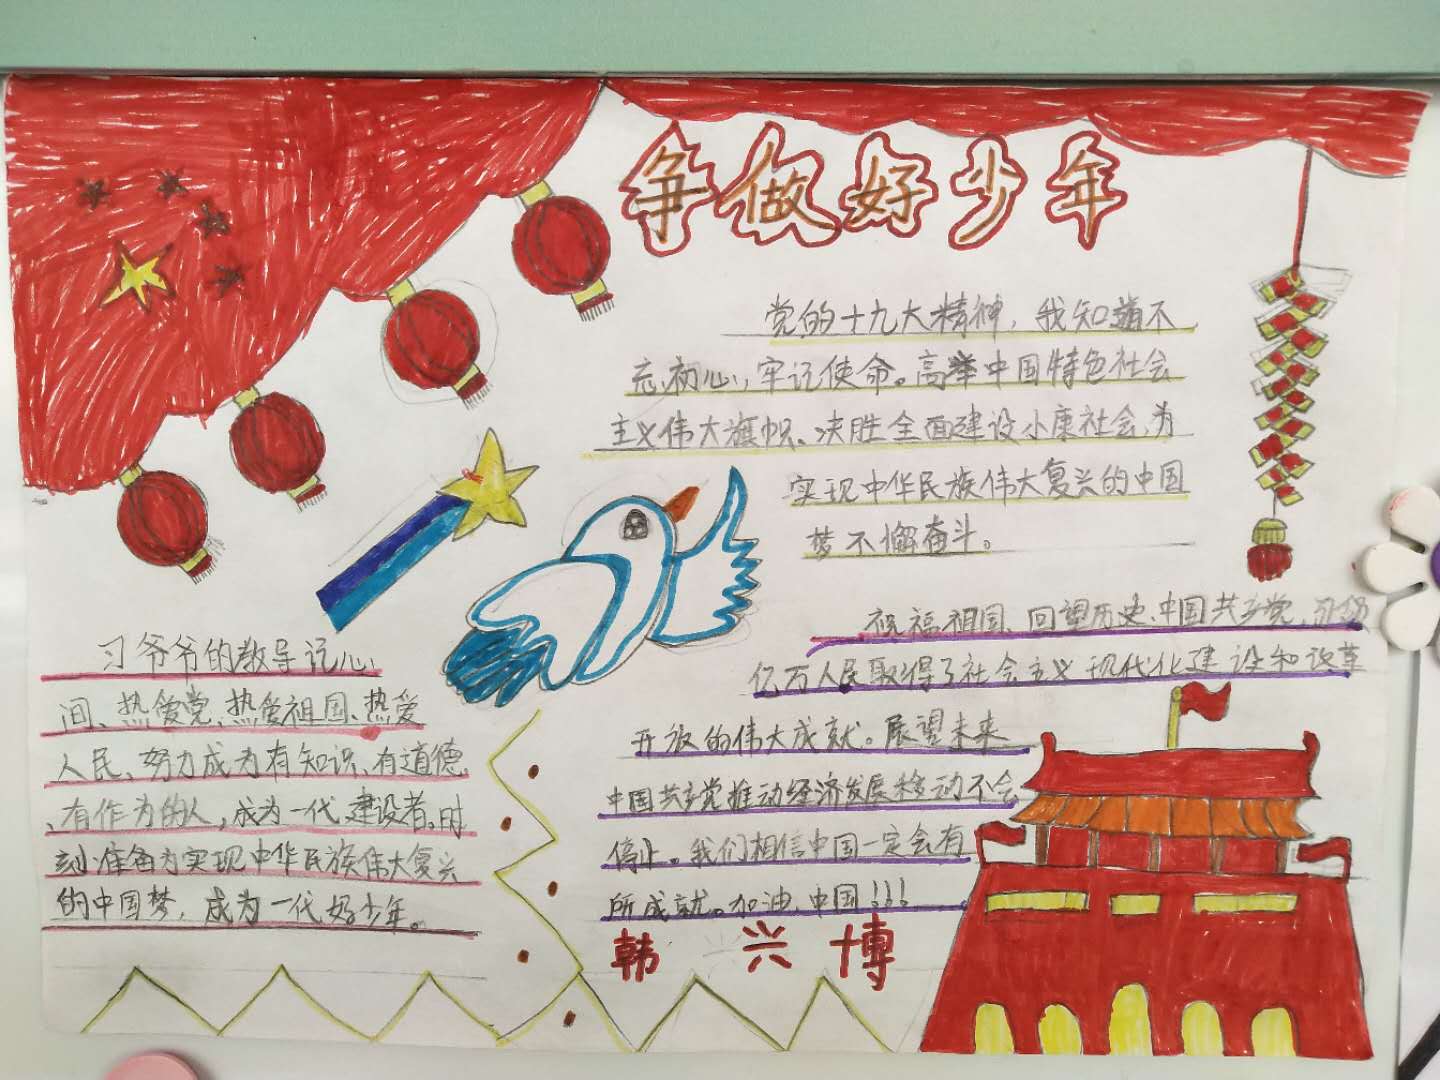 争做好少年
党的十九大精神，我知道不
忘初心，牢记使命。高举中国特色社会
主义伟大旗帜、决胜全面建设小康社会，为
实现中华民族伟大复兴的中国
梦不懈奋斗。
习爷爷的教导记心
间、热爱党、热爱祖国、热爱
人民、努力成为有知识、有道德
、有作为的人，成为一代建设者。时
刻准备为实现中华民族伟大复兴
的中国梦，成为一代好少年。
祝福祖国、回望历史、中国共产党，
亿万人民取得了社会主义现代化建设和改革
开放的伟大成就。展望未来
中国共产党推动经济发展移动不会
停止。我们相信中国一定会有
所成就。加油、中国!!!
韩兴博